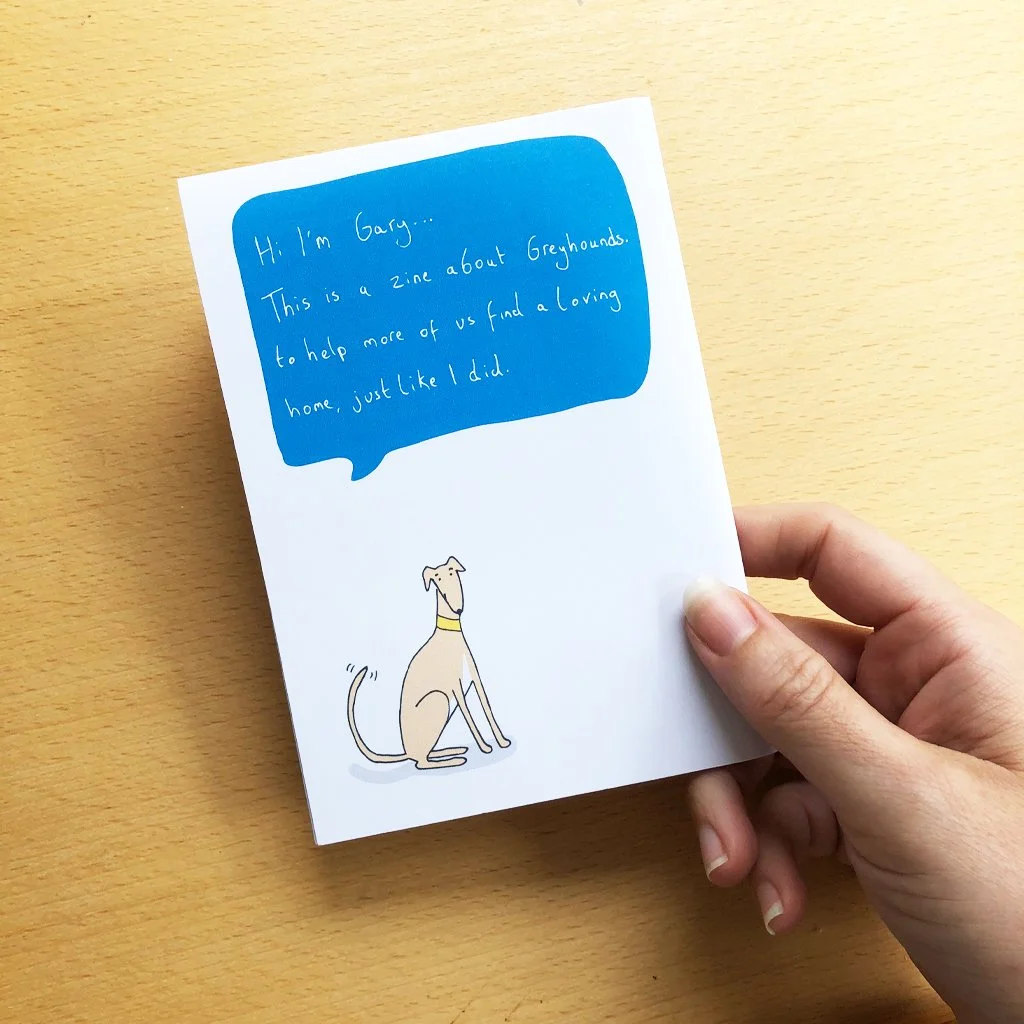 Hi I'm Gary...
This is a zine about Greyhounds.
to help more of us find a loving
home, just like I did.